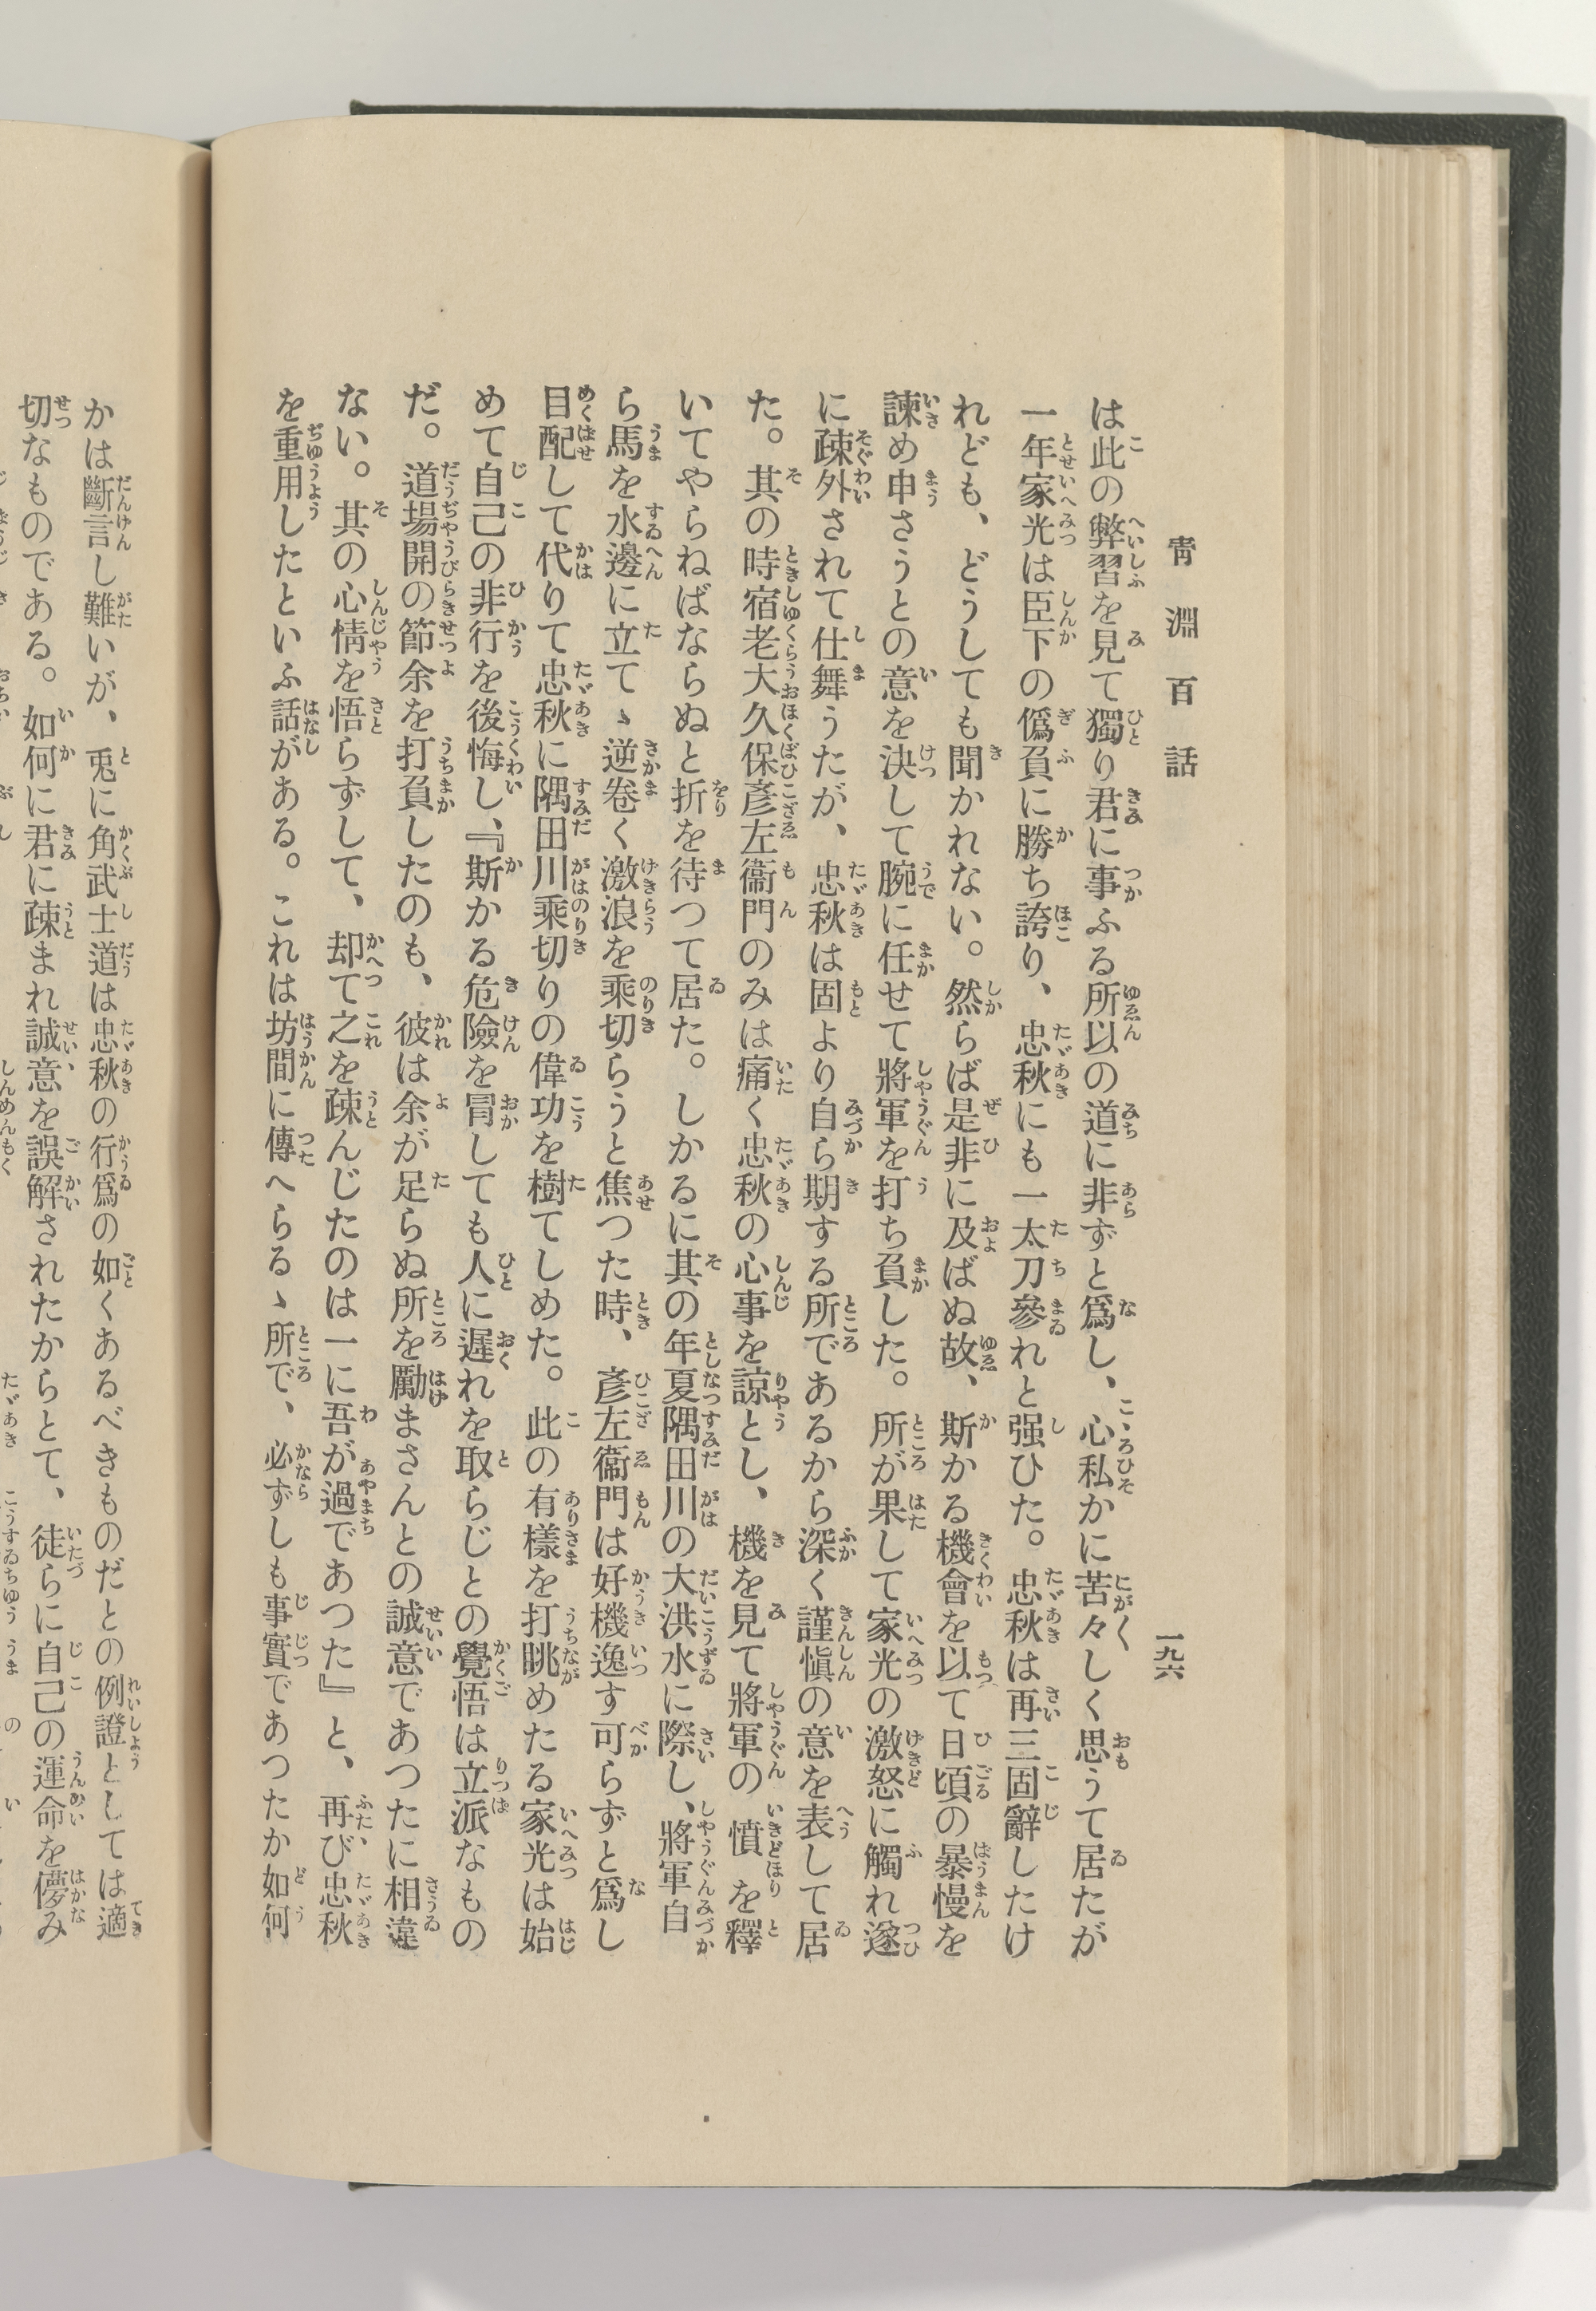 靑淵百話
一九六
は此の弊習を見て獨り君に事ふる所以の道に非ずと爲し、心私かに苦々しく思うて居たが
一年家光は臣下の僞負に勝ち誇り、忠秋にも一太刀參れと强ひた。忠秋は再三固辭したけ
れども、どうしても聞かれない。然らば是非に及ばぬ故、斯かる機會を以て日頃の暴慢を
諫め申さうとの意を決して腕に任せて將軍を打ち負した。所が果して家光の激怒に觸れ遂
に疎外されて仕舞うたが、忠秋は固より自ら期する所であるから深く謹愼の意を表して居
た。其の時宿老大久保彥左衞門のみは痛く忠秋の心事を諒とし、機を見て將軍の憤を釋
いてやらねばならぬと折を待つて居た。しかるに其の年夏隅田川の大洪水に際し、將軍自
ら馬を水邊に立てゝ逆卷く激浪を乘切らうと焦つた時、彥左衞門は好機逸す可らずと爲し
目配して代りて忠秋に隅田川乘切りの偉功を樹てしめた。此の有樣を打眺めたる家光は始
めて自己の非行を後悔し、『斯かる危險を冐しても人に遲れを取らじとの覺悟は立派なもの
だ。道場開の節余を打負したのも、彼は余が足らぬ所を勵まさんとの誠意であつたに相違
ない。其の心情を悟らずして、却て之を疎んじたのは一に吾が過であつた』と、再び忠秋
を重用したといふ話がある。これは坊間に傳へらるゝ所で、必ずしも事實であつたか如何
かは斷言し難いが、兎に角武士道は忠秋の行爲の如くあるべきものだとの例證としては適
切なものである。如何に君に疎まれ誠意を誤解されたからとて、徒らに自己の運命を儚み